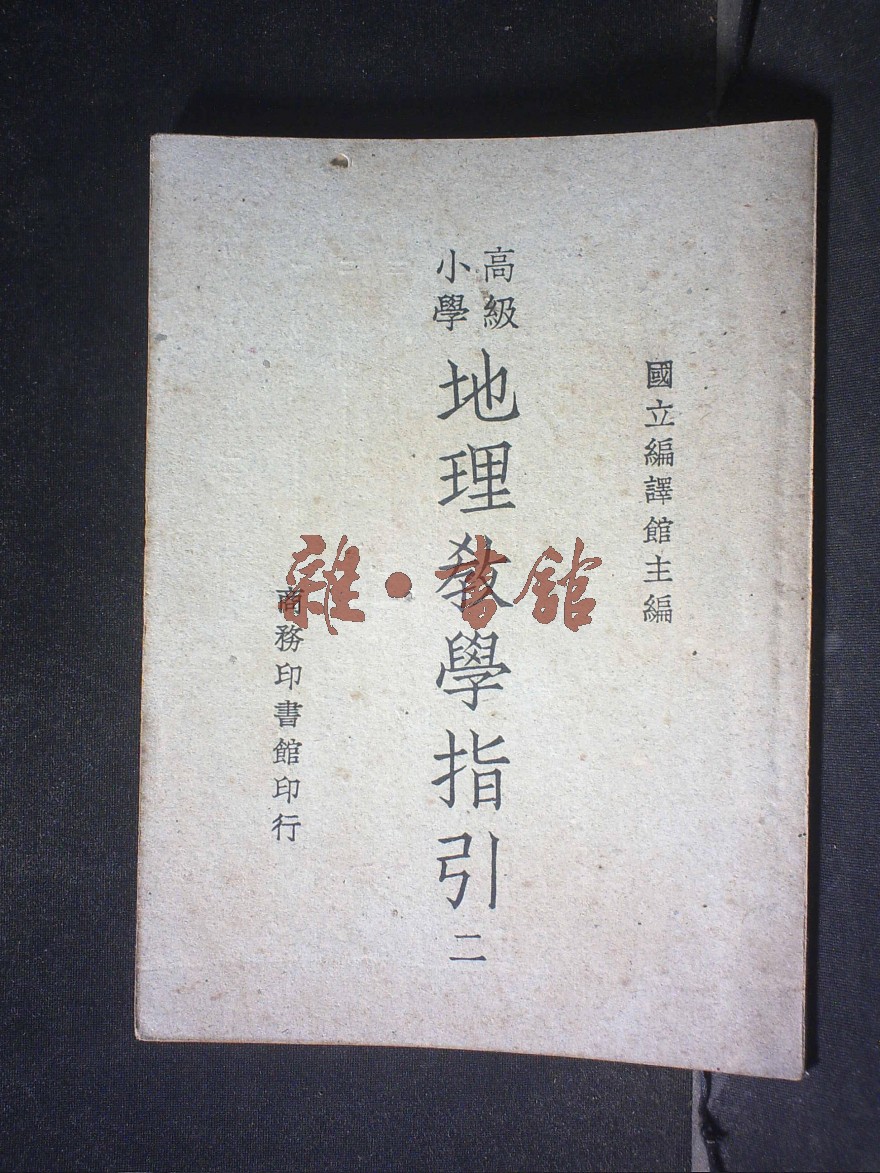 國立編譯館主編
高級
小學
地理教學指引 二
商務印書館印行
雜·書館